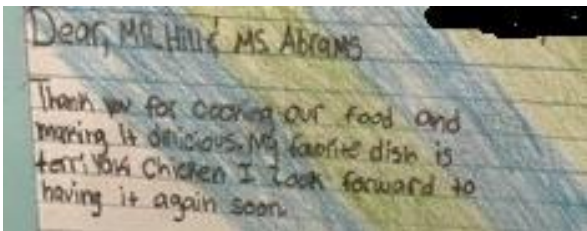 Dear, Mr. Hill & Ms Abrams
Thank you for cooking our food and
making it delicious. My faorite dish is
terri yaki Chicken I look forward to
having it again soon.